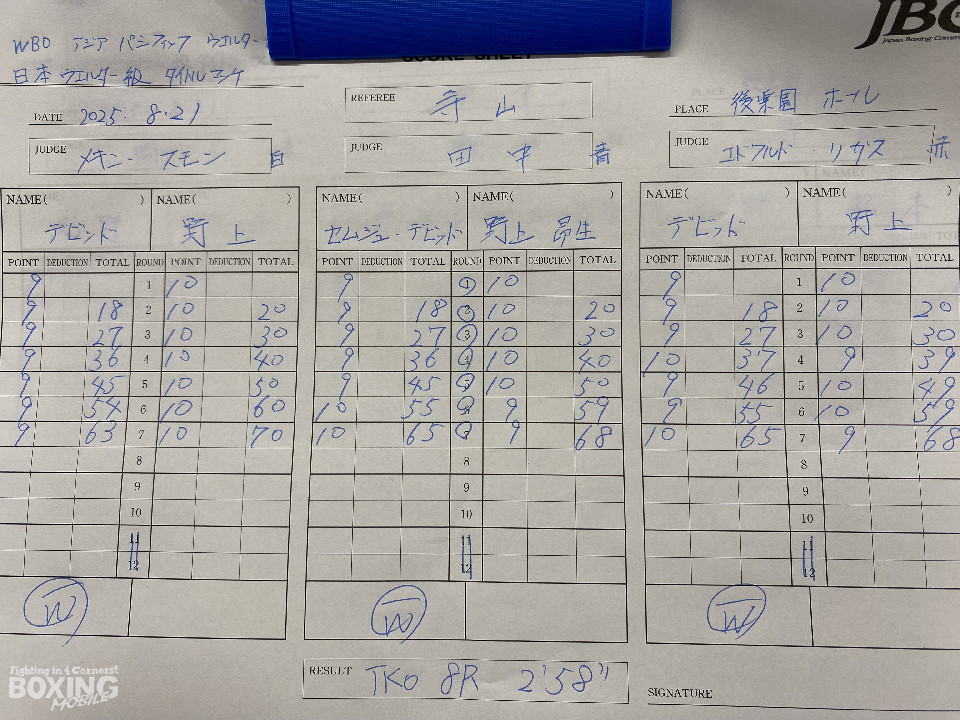 WBO アジア パシフィック ウェルター
日本ウェルター級 タイトルマッチ
JBC
Japan Boxing Comm
SCORE SHEET
DATE 2025. 8.21
REFEREE 寺山
PLACE 後楽園 ホール
JUDGE メキン・スモン 白
JUDGE 田中 青
JUDGE エドワルド・リガス 赤
NAME( ) NAME( ) NAME( ) NAME( ) NAME( ) NAME( )
デビッド 野上 セムジュ・デビッド 野上 昂生 デビッド 野上
POINT DEDUCTION TOTAL ROUND POINT DEDUCTION TOTAL POINT DEDUCTION TOTAL ROUND POINT DEDUCTION TOTAL POINT DEDUCTION TOTAL ROUND POINT DEDUCTION TOTAL
9 1 10 9 1 10 9 1 10
9 18 2 10 20 9 18 2 10 20 9 18 2 10 20
9 27 3 10 30 9 27 3 10 30 9 27 3 10 30
9 36 4 10 40 9 36 4 10 40 10 37 4 9 39
9 45 5 10 50 9 45 5 10 50 9 46 5 10 49
9 54 6 10 60 10 55 6 9 59 9 55 6 10 59
9 63 7 10 70 10 65 7 9 68 10 65 7 9 68
8 8 8
9 9 9
10 10 10
11 11 11
12 12 12
W W W
RESULT TKO 8R 2'58"
SIGNATURE
Fighting in 4 Corners!
BOXING
MOBILE